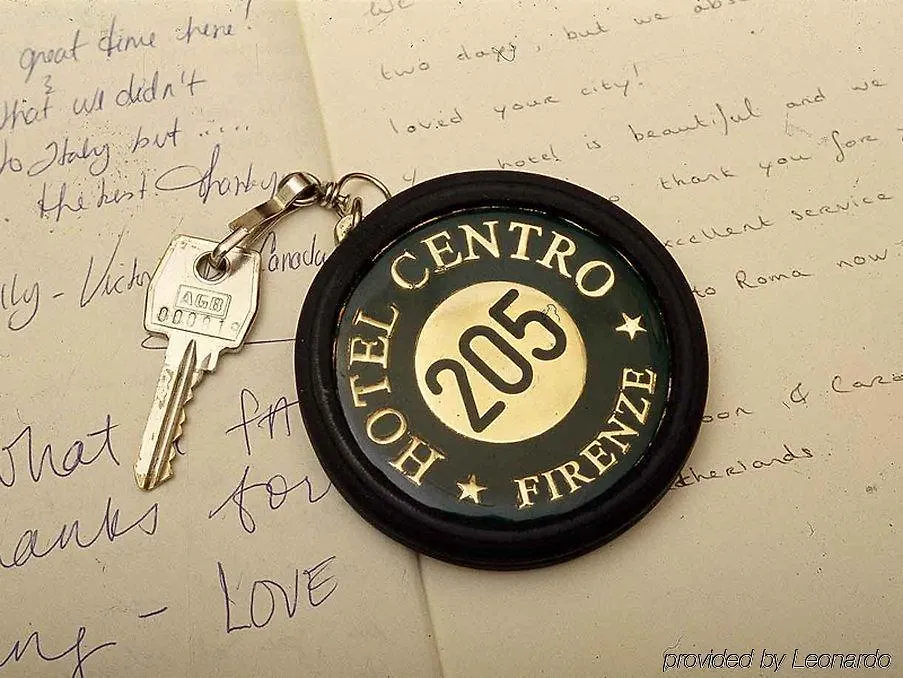 great time here!
&
what we didn't
to Italy but .....
the best Thanks
Canada
What a fA
for
LOVE
We
two days, but we abs
loved your city!
hotel is beautiful and we
thank you for
excellent service
to Roma now
&
therlands.
AGB
HOTEL CENTRO
205
★ FIRENZE ★
provided by Leonardo